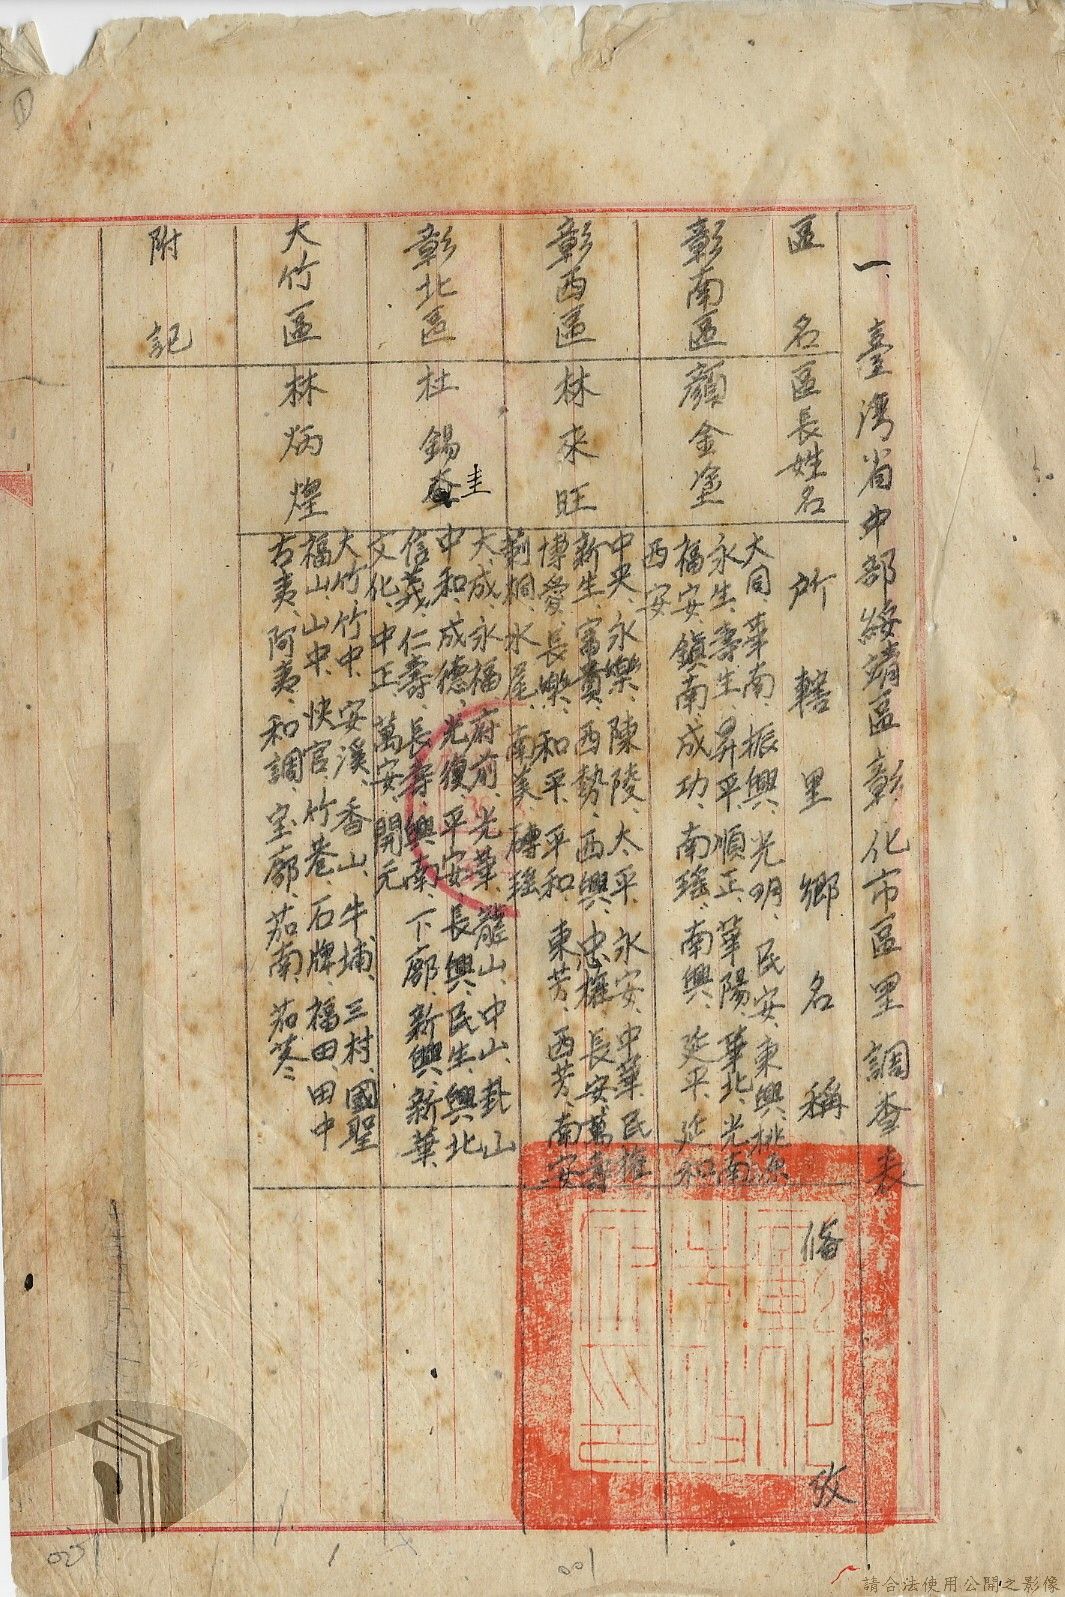 一、臺灣省中部綏靖區彰化市區里調查表
區名 區長姓名 所轄里鄉名稱 備攷
彰南區 顏金塗
大同、華南、振興、光明、民安、東興、桃源、
永生、壽生、昇平、順正、華陽、華北、光南
福安、鎮南、成功、南瑤、南興、延平、延和
西安
彰西區 林來旺
中央、永樂、陳陵、太平、永安、中華、民權、
新生、富貴、西勢、西興、忠權、長安、萬壽
博愛、長樂、和平、平和、東芳、西芳、南安
莿桐、水尾、南美、磚瑤
彰北區 杜錫圭
大成、永福、府前、光華、龍山、中山、卦山
中和、成德、光復、平安、長興、民生、興北
信義、仁壽、長壽、興南、下廍、新興、新華、
文化、中正、萬安、開元
大竹區 林炳煌
大竹、竹中、安溪、香山、牛埔、三村、國聖
福山、山中、快官、竹巷、石牌、福田、田中
古夷、阿夷、和調、宝廍、茄南、茄苳
附記
請合法使用公開之影像